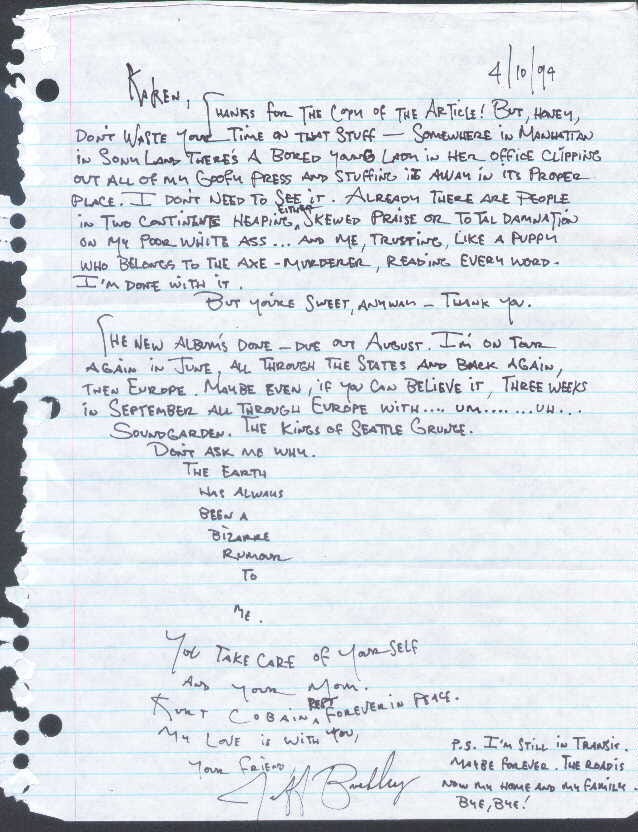 4/10/94
KAREN,
THANKS FOR THE COPY OF THE ARTICLE! BUT, HONEY,
DON'T WASTE YOUR TIME ON THAT STUFF — SOMEWHERE IN MANHATTAN
IN SONY LAND THERE'S A BORED YOUNG LADY IN HER OFFICE CLIPPING
OUT ALL OF MY GOOFY PRESS AND STUFFING IT AWAY IN ITS PROPER
PLACE. I DON'T NEED TO SEE IT. ALREADY THERE ARE PEOPLE
IN TWO CONTINENTS HEAPING EITHER SKEWED PRAISE OR TOTAL DAMNATION
ON MY POOR WHITE ASS... AND ME, TRUSTING, LIKE A PUPPY
WHO BELONGS TO THE AXE-MURDERER, READING EVERY WORD.
I'M DONE WITH IT.
BUT YOU'RE SWEET, ANYWAY — THANK YOU.
THE NEW ALBUM'S DONE — DUE OUT AUGUST. I'M ON TOUR
AGAIN IN JUNE, ALL THROUGH THE STATES AND BACK AGAIN,
THEN EUROPE. MAYBE EVEN, IF YOU CAN BELIEVE IT, THREE WEEKS
IN SEPTEMBER ALL THROUGH EUROPE WITH.... UM.... ...UH...
SOUNDGARDEN. THE KINGS OF SEATTLE GRUNGE.
DON'T ASK ME WHY.
THE EARTH
HAS ALWAYS
BEEN A
BIZARRE
RUMOUR
TO
ME.
YOU TAKE CARE OF YOURSELF
AND YOUR MOM.
KURT COBAIN REST FOREVER IN PEACE.
MY LOVE IS WITH YOU,
YOUR FRIEND
Jeff Buckley
P.S. I'M STILL IN TRANSIT.
MAYBE FOREVER. THE ROAD IS
NOW MY HOME AND MY FAMILY.
BYE, BYE!